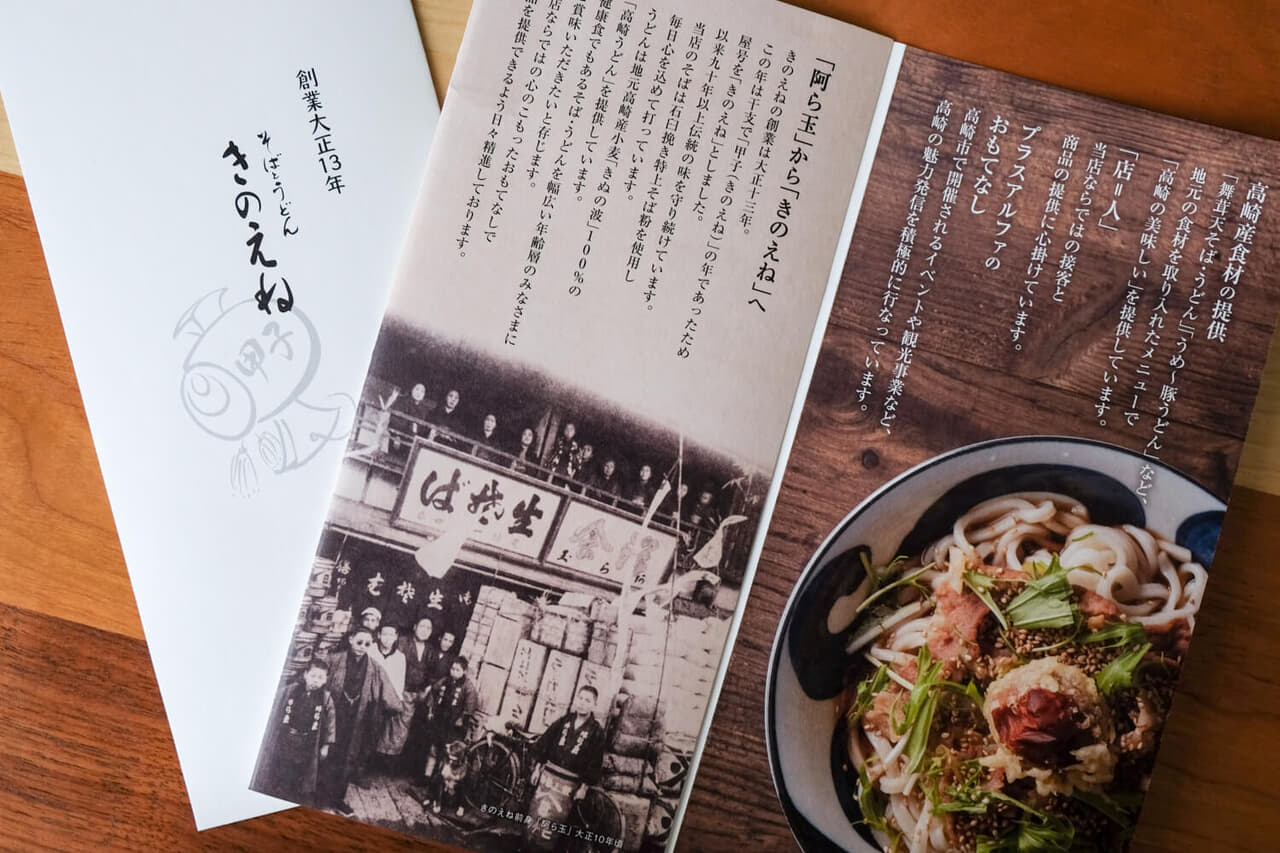 創業大正13年
そばとうどん
きのえね
甲子
「阿ら玉」から「きのえね」へ
きのえねの創業は大正十三年。
この年は干支で「甲子（きのえね）」の年であったため
屋号を「きのえね」としました。
以来九十年以上伝統の味を守り続けています。
当店のそばは石臼挽き特上そば粉を使用し
毎日心を込めて打っています。
うどんは地元高崎産小麦「きぬの波」100%の
「高崎うどん」を提供しています。
健康食でもあるそば・うどんを幅広い年齢層のみなさまに
賞味いただきたいと存じます。
店ならではの心のこもったおもてなしで
を提供できるよう日々精進しております。
生そば
阿ら玉
生そば
きのえね前身「阿ら玉」大正10年頃
高崎産食材の提供
「舞茸天そば・うどん」「うめ〜豚うどん」など、
地元の食材を取り入れたメニューで
「高崎の美味しい」を提供しています。
「店=人」
当店ならではの接客と
商品の提供に心掛けています。
プラスアルファの
おもてなし
高崎市で開催されるイベントや観光事業など、
高崎の魅力発信を積極的に行なっています。